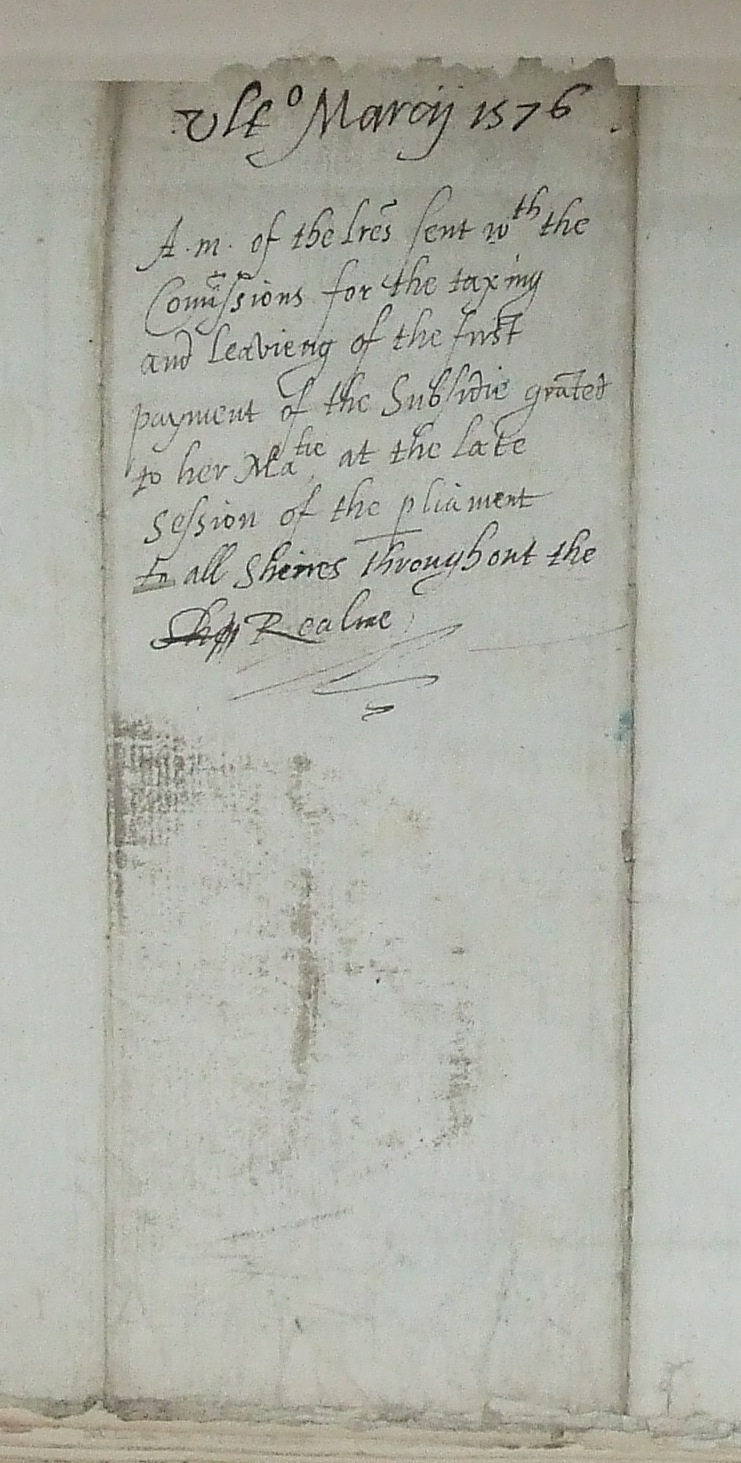 Ult° Marcij 1576
A. m. of the lrēs sent wth the
Com̄issions for the taxing
and leavieng of the first
payment of the Subsidie grāted
to her Matie, at the late
session of the pliament
to all Sheires throughout the
Realme